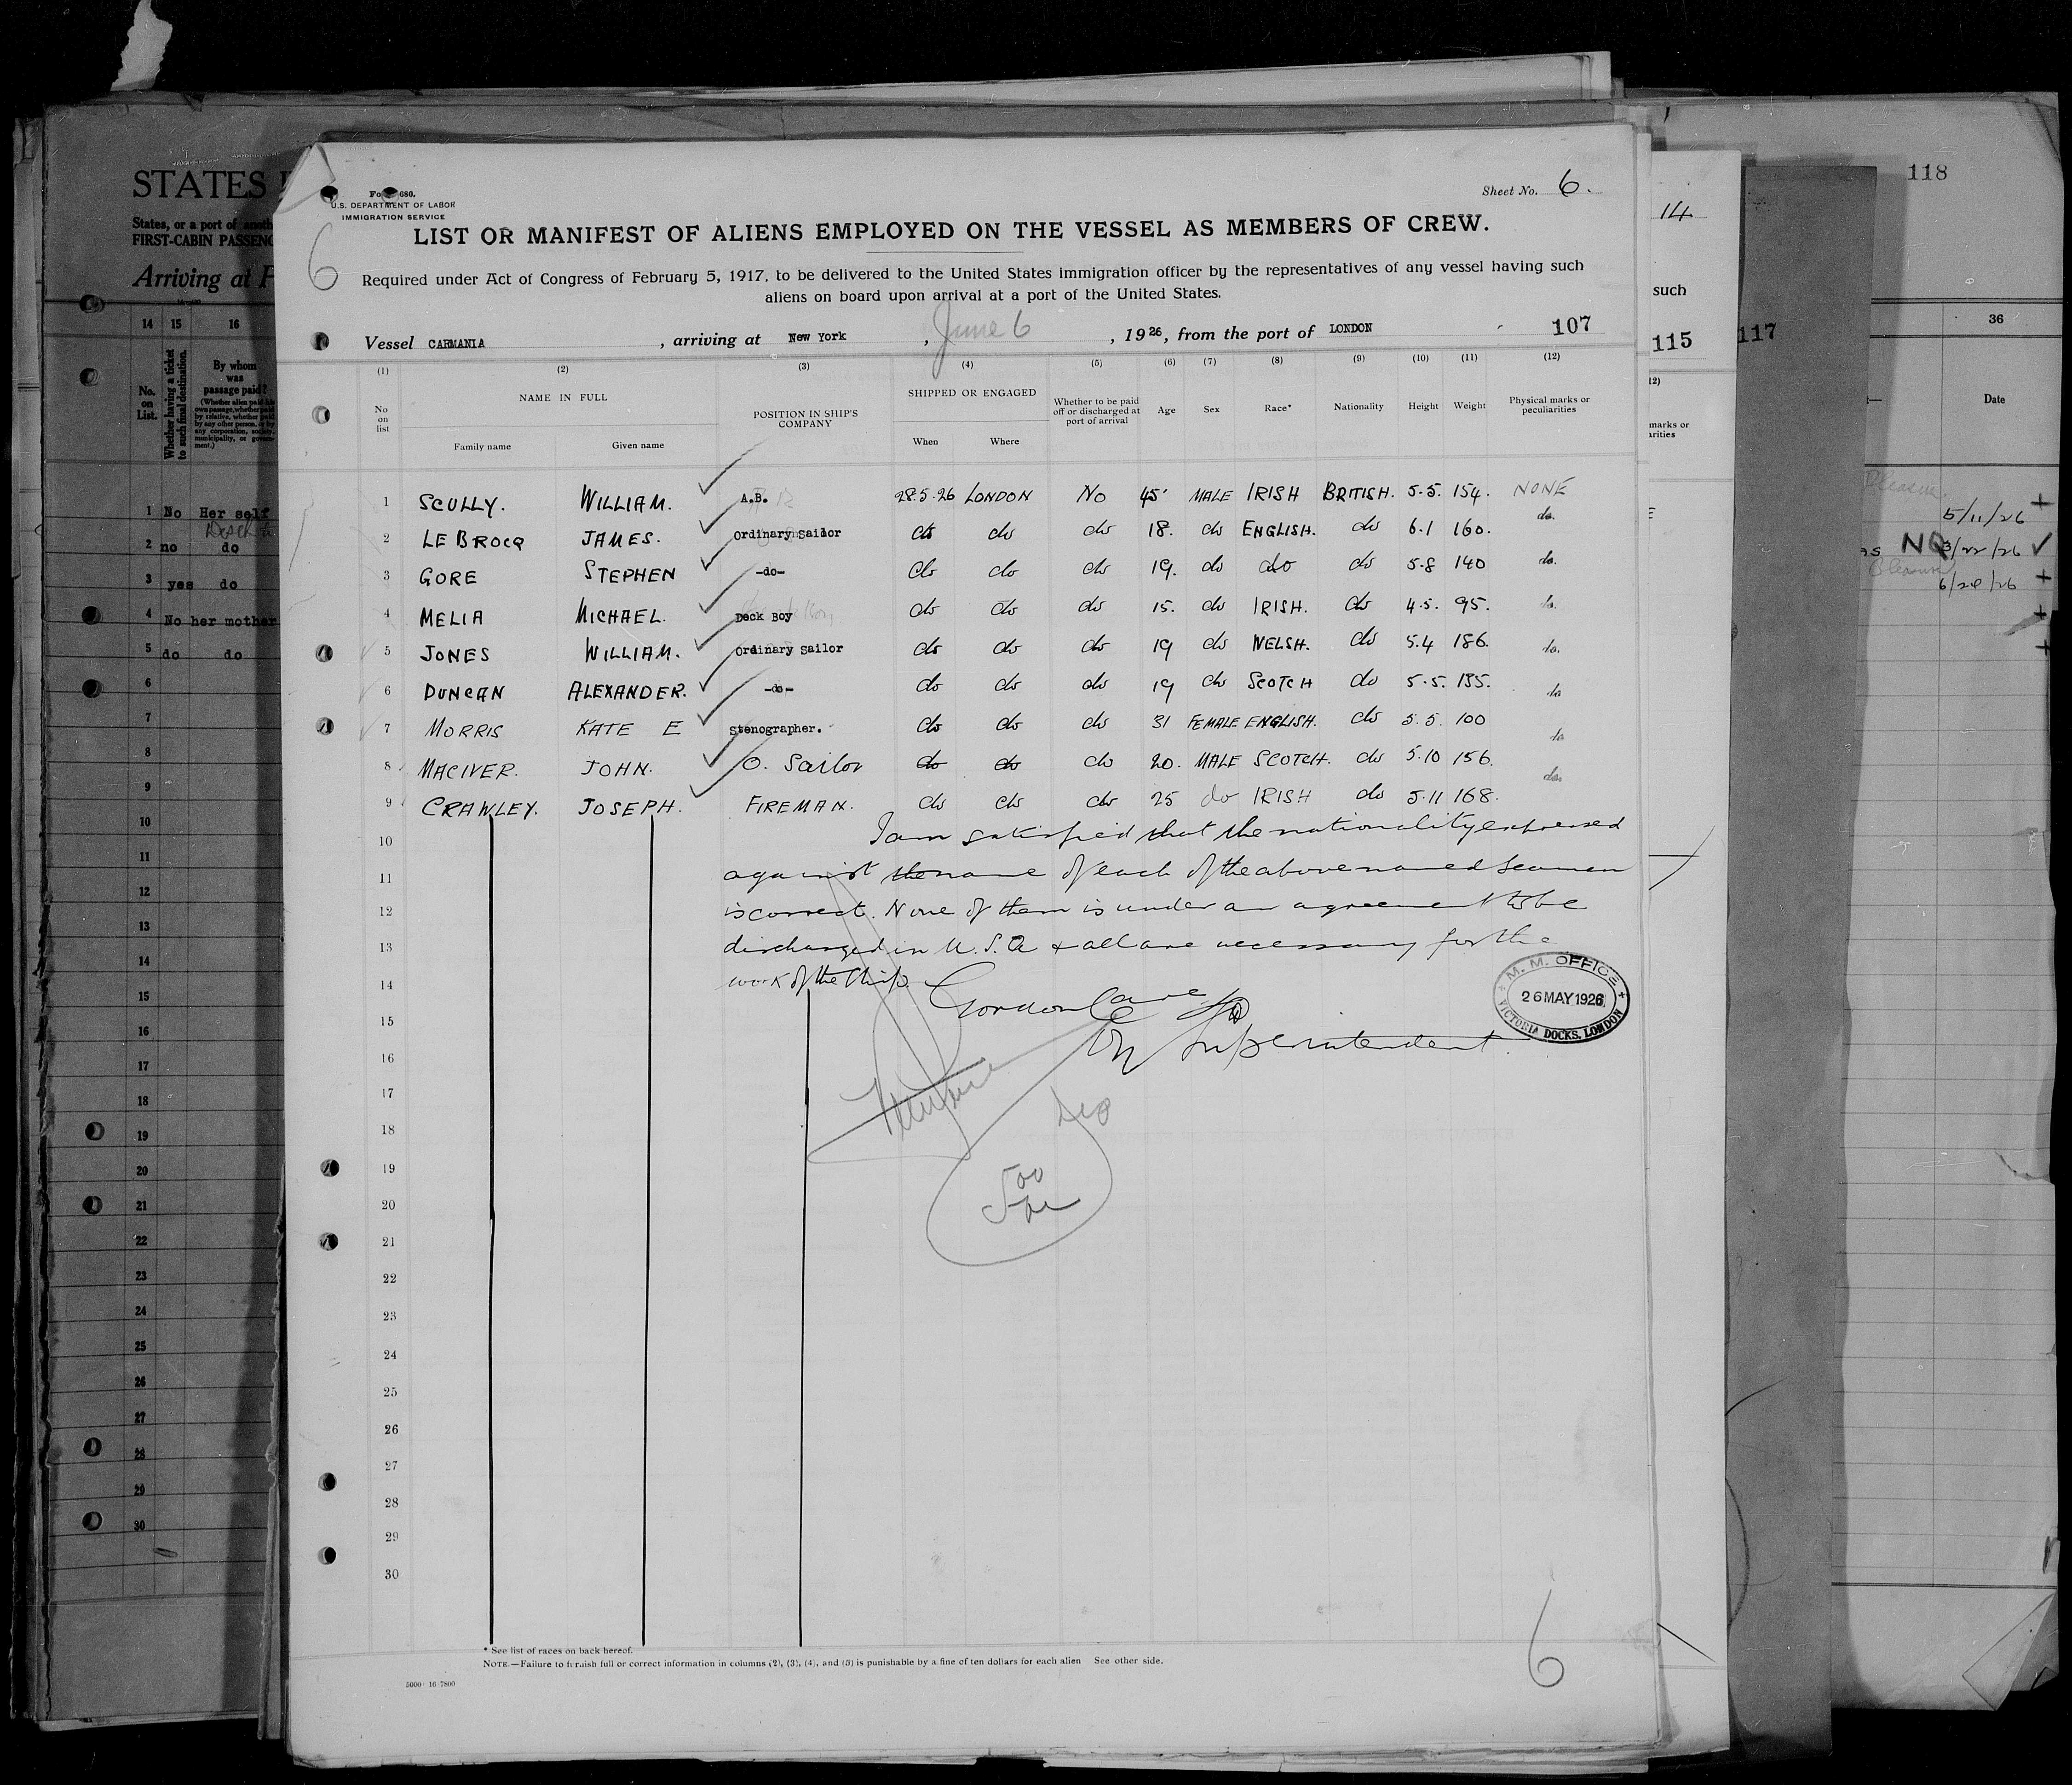 118
14
STATES
States, or a port of anoth
FIRST-CABIN PASSENG
Arriving at P
14 15 16
No. on List.
Whether having a ticket to such final destination.
By whom was passage paid?
(Whether alien paid his own passage, whether paid by relative, whether paid by any other person, or by any corporation, society, municipality, or government.)
1 No Her self
2 no do
3 yes do
4 No her mother
5 do do
6
7
8
9
10
11
12
13
14
15
16
17
18
19
20
21
22
23
24
25
26
27
28
29
30
Form 680.
U.S. DEPARTMENT OF LABOR
IMMIGRATION SERVICE
Sheet No. 6.
6
LIST OR MANIFEST OF ALIENS EMPLOYED ON THE VESSEL AS MEMBERS OF CREW.
Required under Act of Congress of February 5, 1917, to be delivered to the United States immigration officer by the representatives of any vessel having such
aliens on board upon arrival at a port of the United States.
Vessel CARMANIA, arriving at New York, June 6, 1926, from the port of LONDON 107
(1) (2) (3) (4) (5) (6) (7) (8) (9) (10) (11) (12)
No on list
NAME IN FULL
Family name Given name
POSITION IN SHIP'S COMPANY
SHIPPED OR ENGAGED
When Where
Whether to be paid off or discharged at port of arrival
Age Sex Race* Nationality Height Weight
Physical marks or peculiarities
1 SCULLY. WILLIAM. A.B. 28.5.26 LONDON No 45 MALE IRISH BRITISH. 5-5. 154. NONE
2 LE BROCQ JAMES. Ordinary Sailor do do do 18. do ENGLISH. do 6.1 160. do.
3 GORE STEPHEN -do- do do do 19. do do do 5-8 140 do.
4 MELIA MICHAEL. Deck Boy do do do 15. do IRISH. do 4.5. 95. do.
5 JONES WILLIAM. Ordinary Sailor do do do 19 do WELSH. do 5.4 186. do.
6 DUNCAN ALEXANDER. -do- do do do 19 do SCOTCH do 5.5. 135. do
7 MORRIS KATE E Stenographer. do do do 31 FEMALE ENGLISH. do 5.5. 100 do
8 MACIVER. JOHN. O. Sailor do do do 20. MALE SCOTCH. do 5.10 156. do.
9 CRAWLEY. JOSEPH. FIREMAN. do do do 25 do IRISH do 5.11 168.
10
11
12
13
14
15
16
17
18
19
20
21
22
23
24
25
26
27
28
29
30
I am satisfied that the nationality expressed
against the name of each of the above named Seamen
is correct. None of them is under an agreement to be
discharged in U.S.A & all are necessary for the
work of the Ship
Superintendent
M. M. OFFICE
26 MAY 1926
VICTORIA DOCKS, LONDON
6
* See list of races on back hereof.
NOTE.—Failure to furnish full or correct information in columns (2), (3), (4), and (5) is punishable by a fine of ten dollars for each alien See other side.
such
115
117
12)
marks or
arities
36
Date
Pleasure
5/11/26
NQ 3/22/26
Pleasure
6/28/26